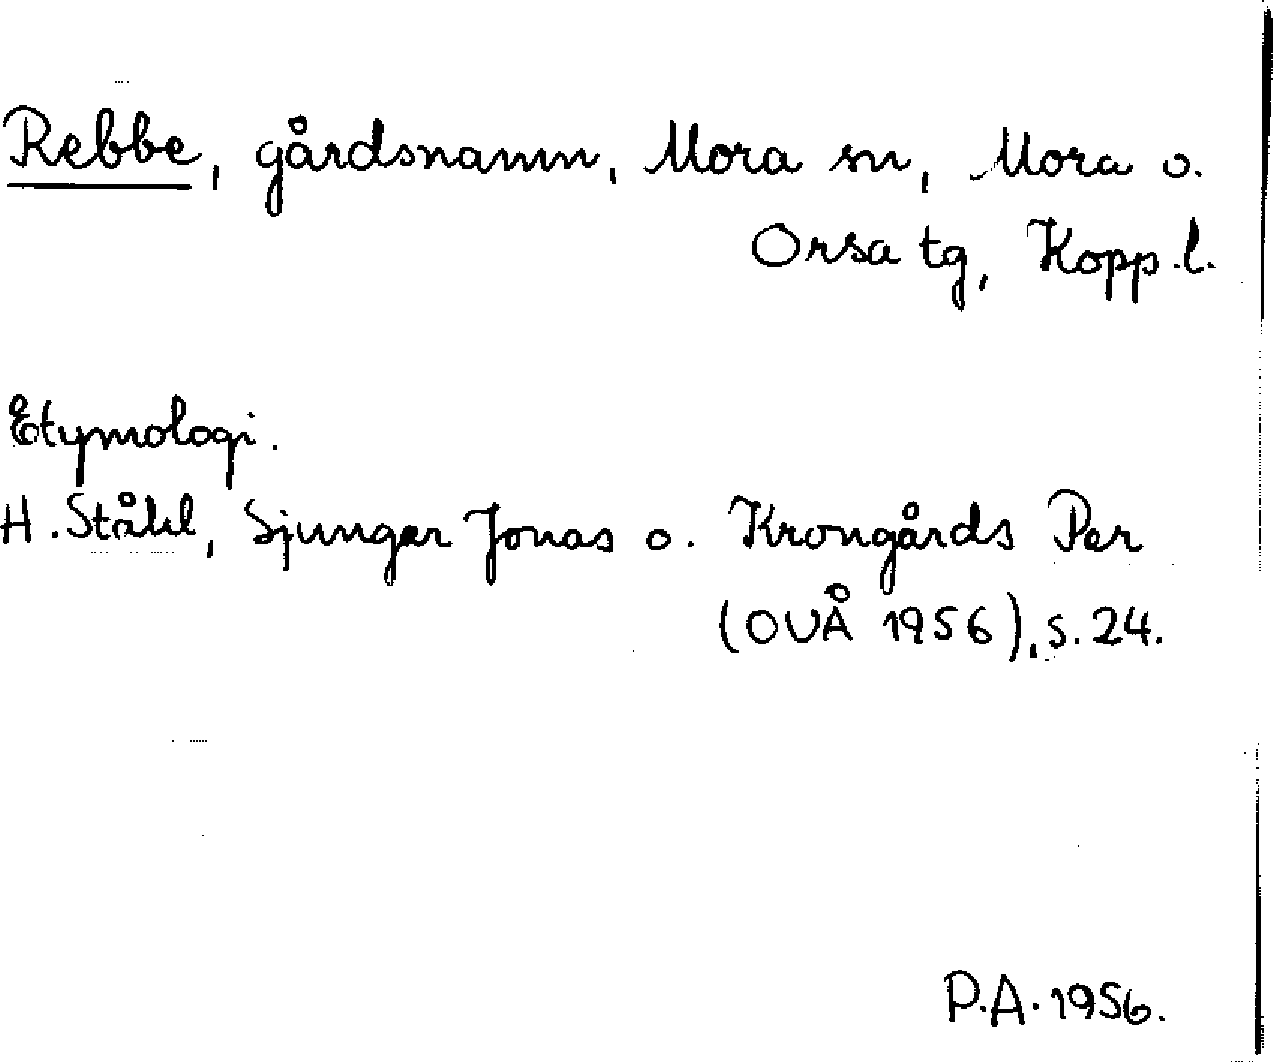 Rebbe, gårdsnamn, Mora sn, Mora o.
Orsa tg, Kopp.l.
Etymologi.
H. Ståhl, Sjungar Jonas o. Krongårds Per
(OUÅ 1956), s. 24.
P.A. 1956.